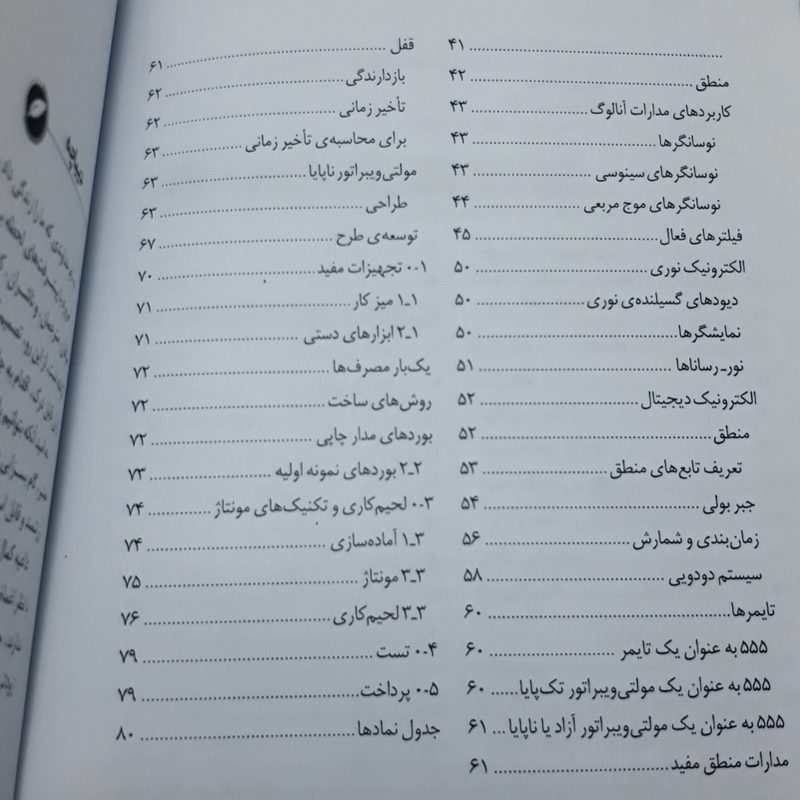 ........ ۴۱
منطق ........ ۴۲
کاربردهای مدارات آنالوگ ........ ۴۳
نوسانگرها ........ ۴۳
نوسانگرهای سینوسی ........ ۴۳
نوسانگرهای موج مربعی ........ ۴۴
فیلترهای فعال ........ ۴۵
الکترونیک نوری ........ ۵۰
دیودهای گسیلنده‌ی نوری ........ ۵۰
نمایشگرها ........ ۵۰
نور-رساناها ........ ۵۱
الکترونیک دیجیتال ........ ۵۲
منطق ........ ۵۲
تعریف تابع‌های منطق ........ ۵۳
جبر بولی ........ ۵۴
زمان‌بندی و شمارش ........ ۵۶
سیستم دودویی ........ ۵۸
تایمرها ........ ۶۰
۵۵۵ به عنوان یک تایمر ........ ۶۰
۵۵۵ به عنوان یک مولتی‌ویبراتور تک‌پایا ...... ۶۰
۵۵۵ به عنوان یک مولتی‌ویبراتور آزاد یا ناپایا ... ۶۱
مدارات منطق مفید ........ ۶۱
قفل ........ ۶۱
بازدارندگی ........ ۶۲
تأخیر زمانی ........ ۶۲
برای محاسبه‌ی تأخیر زمانی ........ ۶۳
مولتی‌ویبراتور ناپایا ........ ۶۳
طراحی ........ ۶۳
توسعه‌ی طرح ........ ۶۷
۰-۱ تجهیزات مفید ........ ۷۰
۱_۱ میز کار ........ ۷۱
۲_۱ ابزارهای دستی ........ ۷۱
یک‌بار مصرف‌ها ........ ۷۲
روش‌های ساخت ........ ۷۲
بوردهای مدار چاپی ........ ۷۲
۲_۲ بوردهای نمونه اولیه ........ ۷۳
۰-۳ لحیم‌کاری و تکنیک‌های مونتاژ ........ ۷۴
۱_۳ آماده‌سازی ........ ۷۴
۳_۳ مونتاژ ........ ۷۵
۳_۳ لحیم‌کاری ........ ۷۶
۰-۴ تست ........ ۷۹
۰-۵ پرداخت ........ ۷۹
جدول نمادها ........ ۸۰